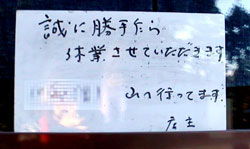 誠に勝手たら
休業させていただきます
山へ行ってます.
店主